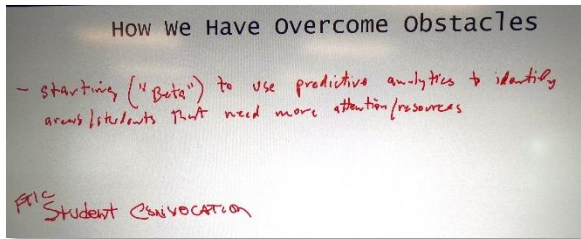 How We Have Overcome Obstacles
- starting ("Beta") to use predictive analytics to identify
areas/students that need more attention/resources
FTIC
Student CONVOCATION